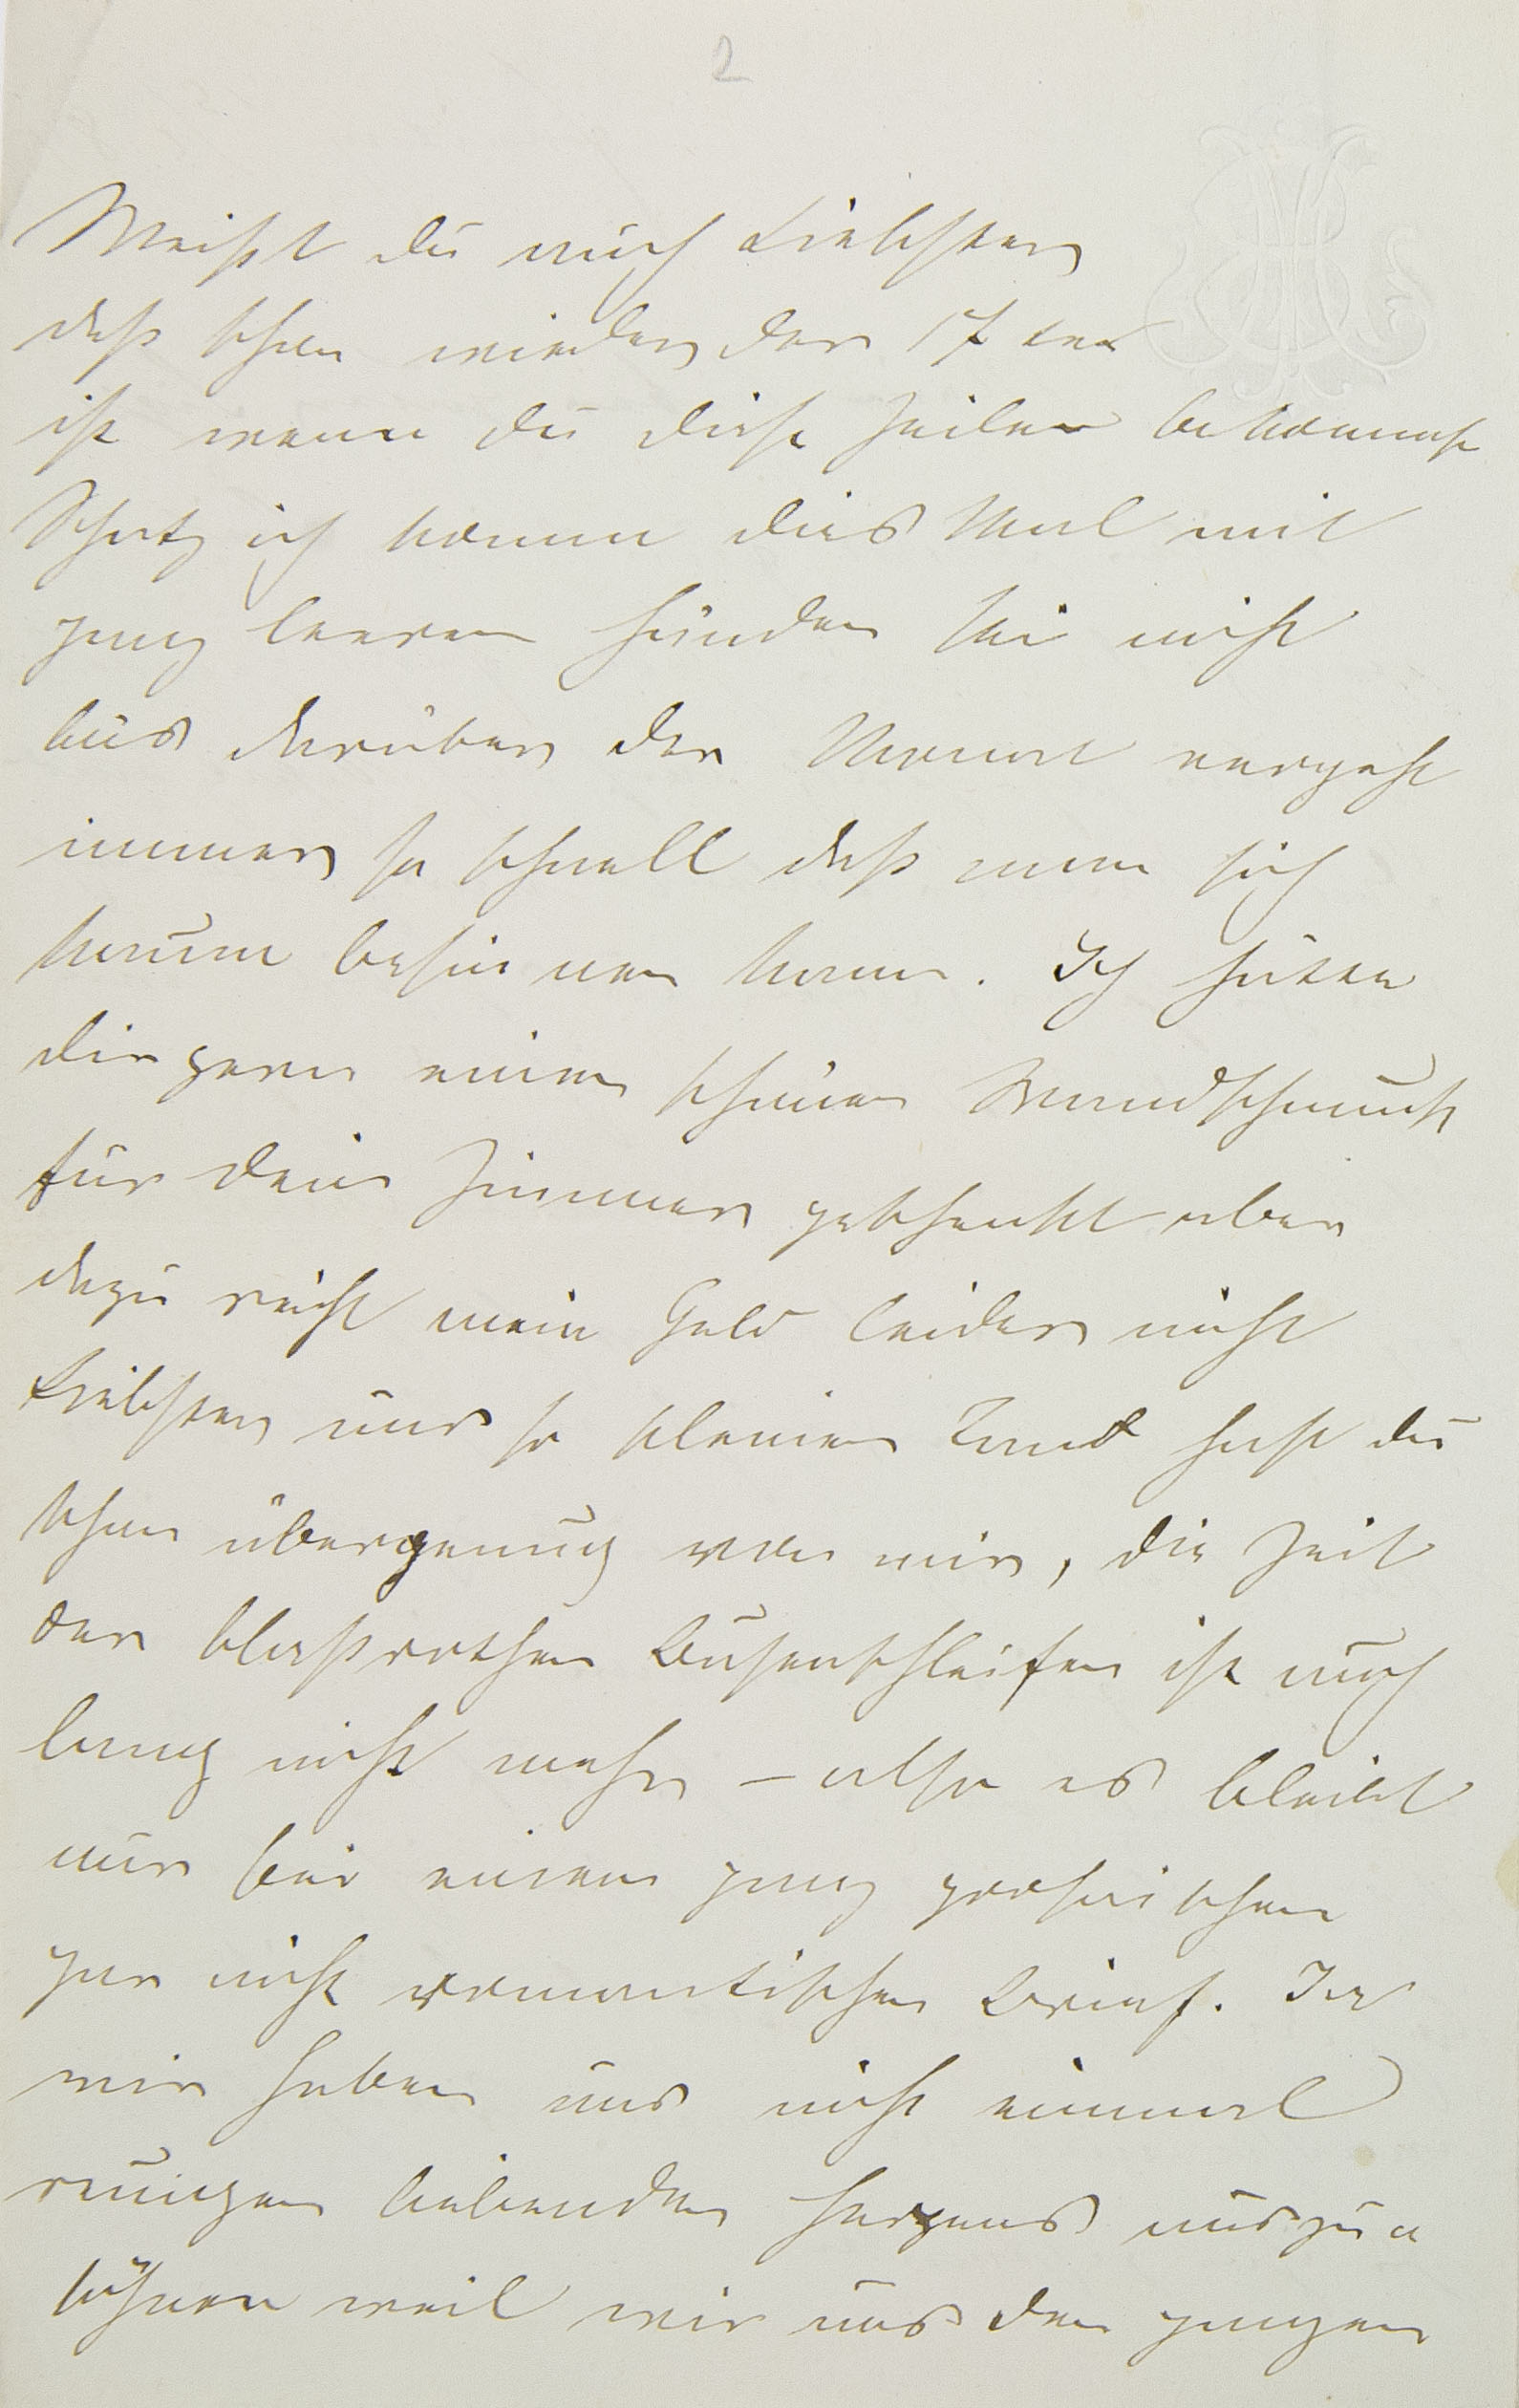 2
Weißt du auch Liebster
daß schon wieder der 17 ten
ist wenn du diese Zeilen bekommst
Schatz ich komme dies Mal mit
ganz leeren Händen sei nicht
bös darüber der Monat vergeht
immer so schnell daß man sich
kaum besinnen kann. Ich hätte
dir gern einen schönen Wandschmuck
für dein Zimmer geschenkt aber
dazu reicht mein Geld leider nicht
Liebster und so kleinen Tand hast du
schon übergenug von mir, die Zeit
der blaßrothen Busenschleifen ist auch
lang nicht mehr – also es bleibt
nur bei einem ganz prosaischen
gar nicht romantischen Brief. Ja
wir haben uns nicht einmal
einigen liebenden Herzens auszu
söhnen weil wir uns den ganzen